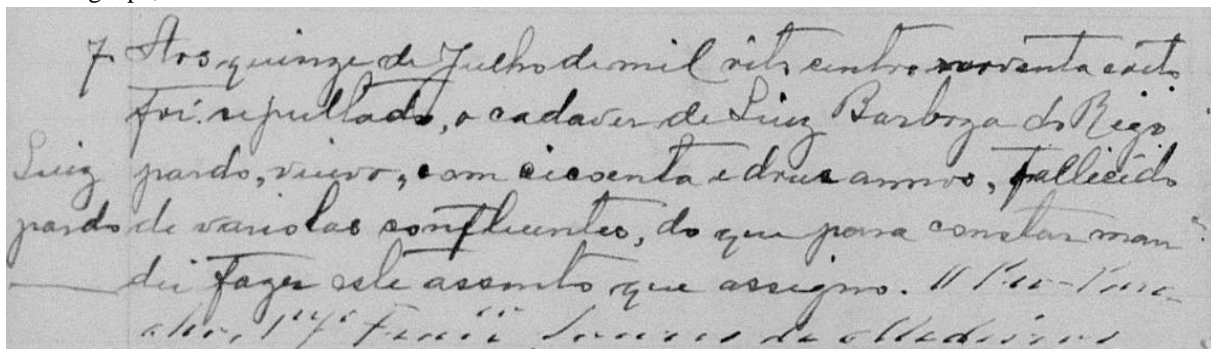 7 Aos quinze de Julho de mil oito centro noventa eoito
foi sepultado, o cadaver de Luiz Barboza do Rego
Luiz pardo, viuvo, com cicoenta e dous annos, fallecido
pardo de variolas confluentes, do que para constar man
dei fazer este assento que assigno. O Pro-Paro-
cho,